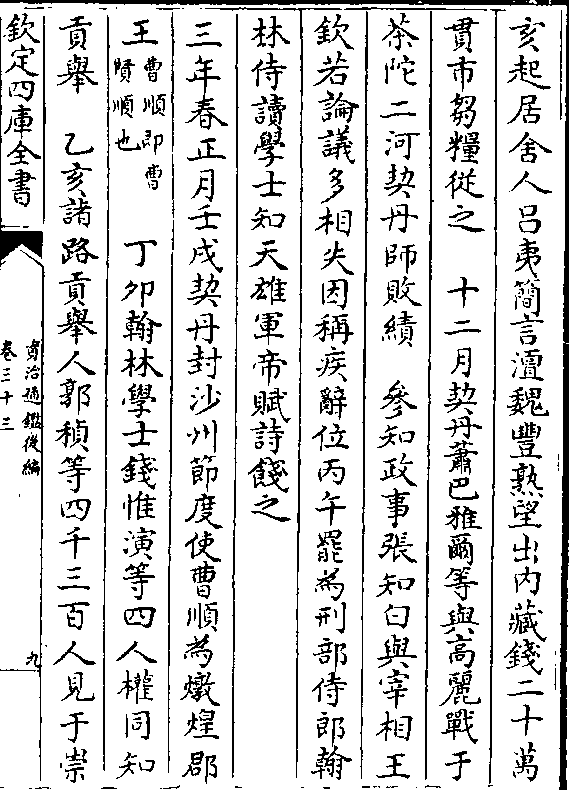 亥起居舍人呂夷簡言澶魏豐熟望出内藏錢二十萬
貫市芻糧從之　十二月契丹蕭巴雅爾等與高麗戰于
茶陀二河契丹師敗績　參知政事張知白與宰相王
欽若論議多相失因稱疾辭位丙午罷為刑部侍郎翰
林侍讀學士知天雄軍帝賦詩餞之
三年春正月壬戌契丹封沙州節度使曹順為燉煌郡
王曹順即曹賢順也　丁卯翰林學士錢惟演等四人權同知
貢舉　乙亥諸路貢舉人郭稹等四千三百人見于崇
欽定四庫全書
資治通鑑後編
卷三十三
九